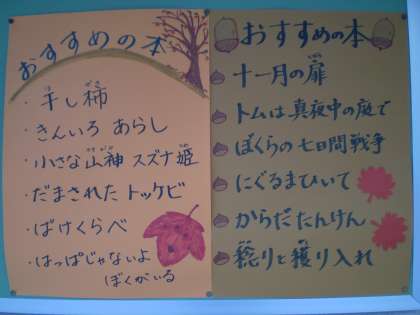 おすすめの本
・干し柿
・きんいろ あらし
・小さな山神 スズナ姫
・だまされた トッケビ
・ばけくらべ
・はっぱじゃないよ
ぼくがいる
おすすめの本
十一月の扉
トムは真夜中の庭で
ぼくらの七日間戦争
にぐるまひいて
からだたんけん
稔りと穫り入れ